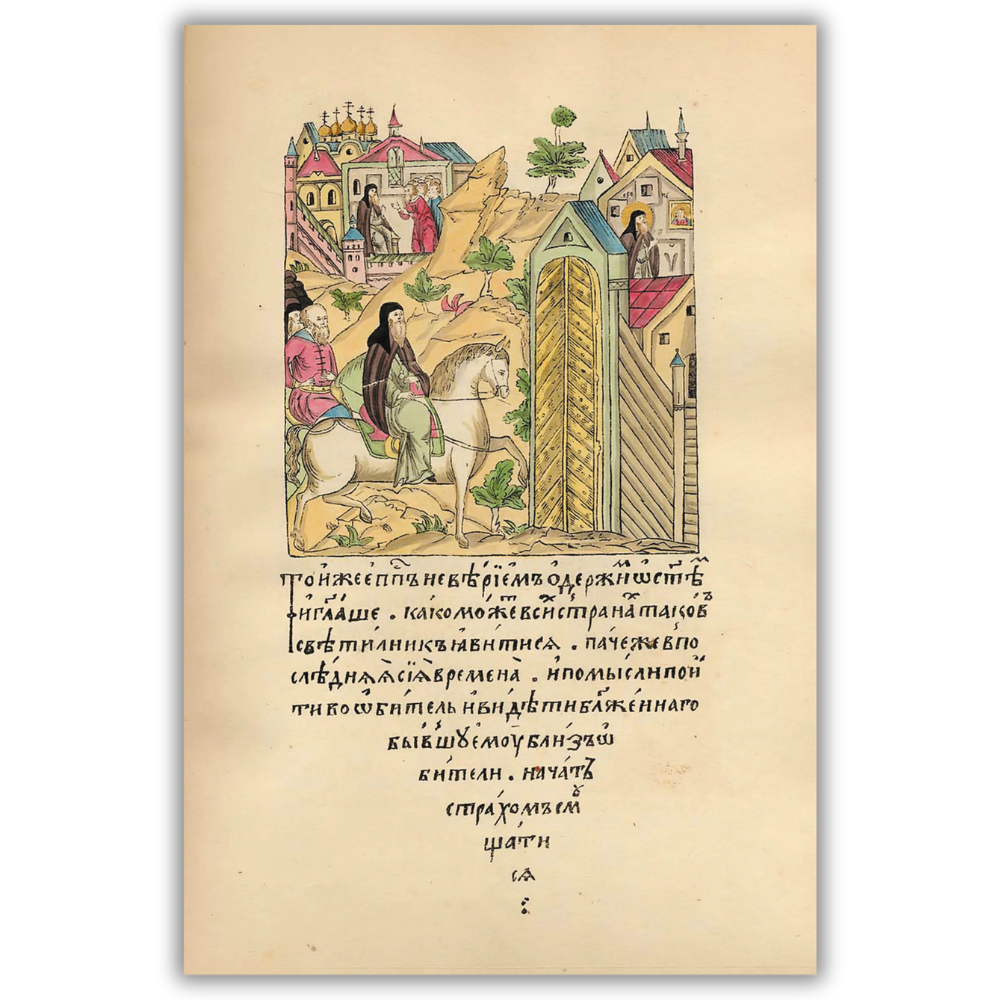 То́йжеепⷭ҇пъневѣ́рїемъѡдержи́мѡсꙋмнѣ́
иг҃лаше. ка́комо́жетвсихъстрана́хътако́въ
свѣти́лникъꙗви́тисѧ. па́чежевпо
слѣ́днѧѧсїѧ̀времена̀. ипомы́слипои
ти́воѡби́тельиви́дѣтиблаже́ннаго
бы́вшꙋемꙋ̀бли́зъѡ
би́тели. нача́тъ
стра́хомъсмꙋ
ща́ти
сѧ